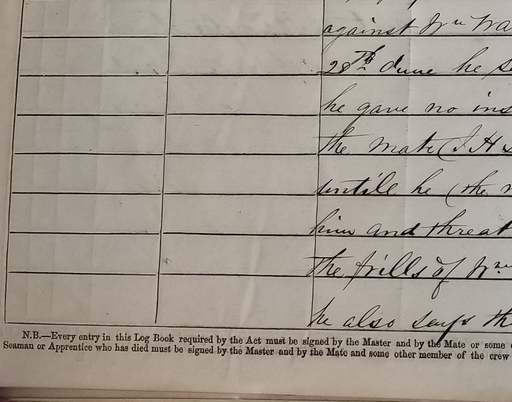 against Wm Wa
28th June he s
he gave no ins
the Mate (J. H
untile he (the
him and threat
the frills of Wm
he also says th
N.B.—Every entry in this Log Book required by the Act must be signed by the Master and by the Mate or some
Seaman or Apprentice who has died must be signed by the Master and by the Mate and some other member of the crew